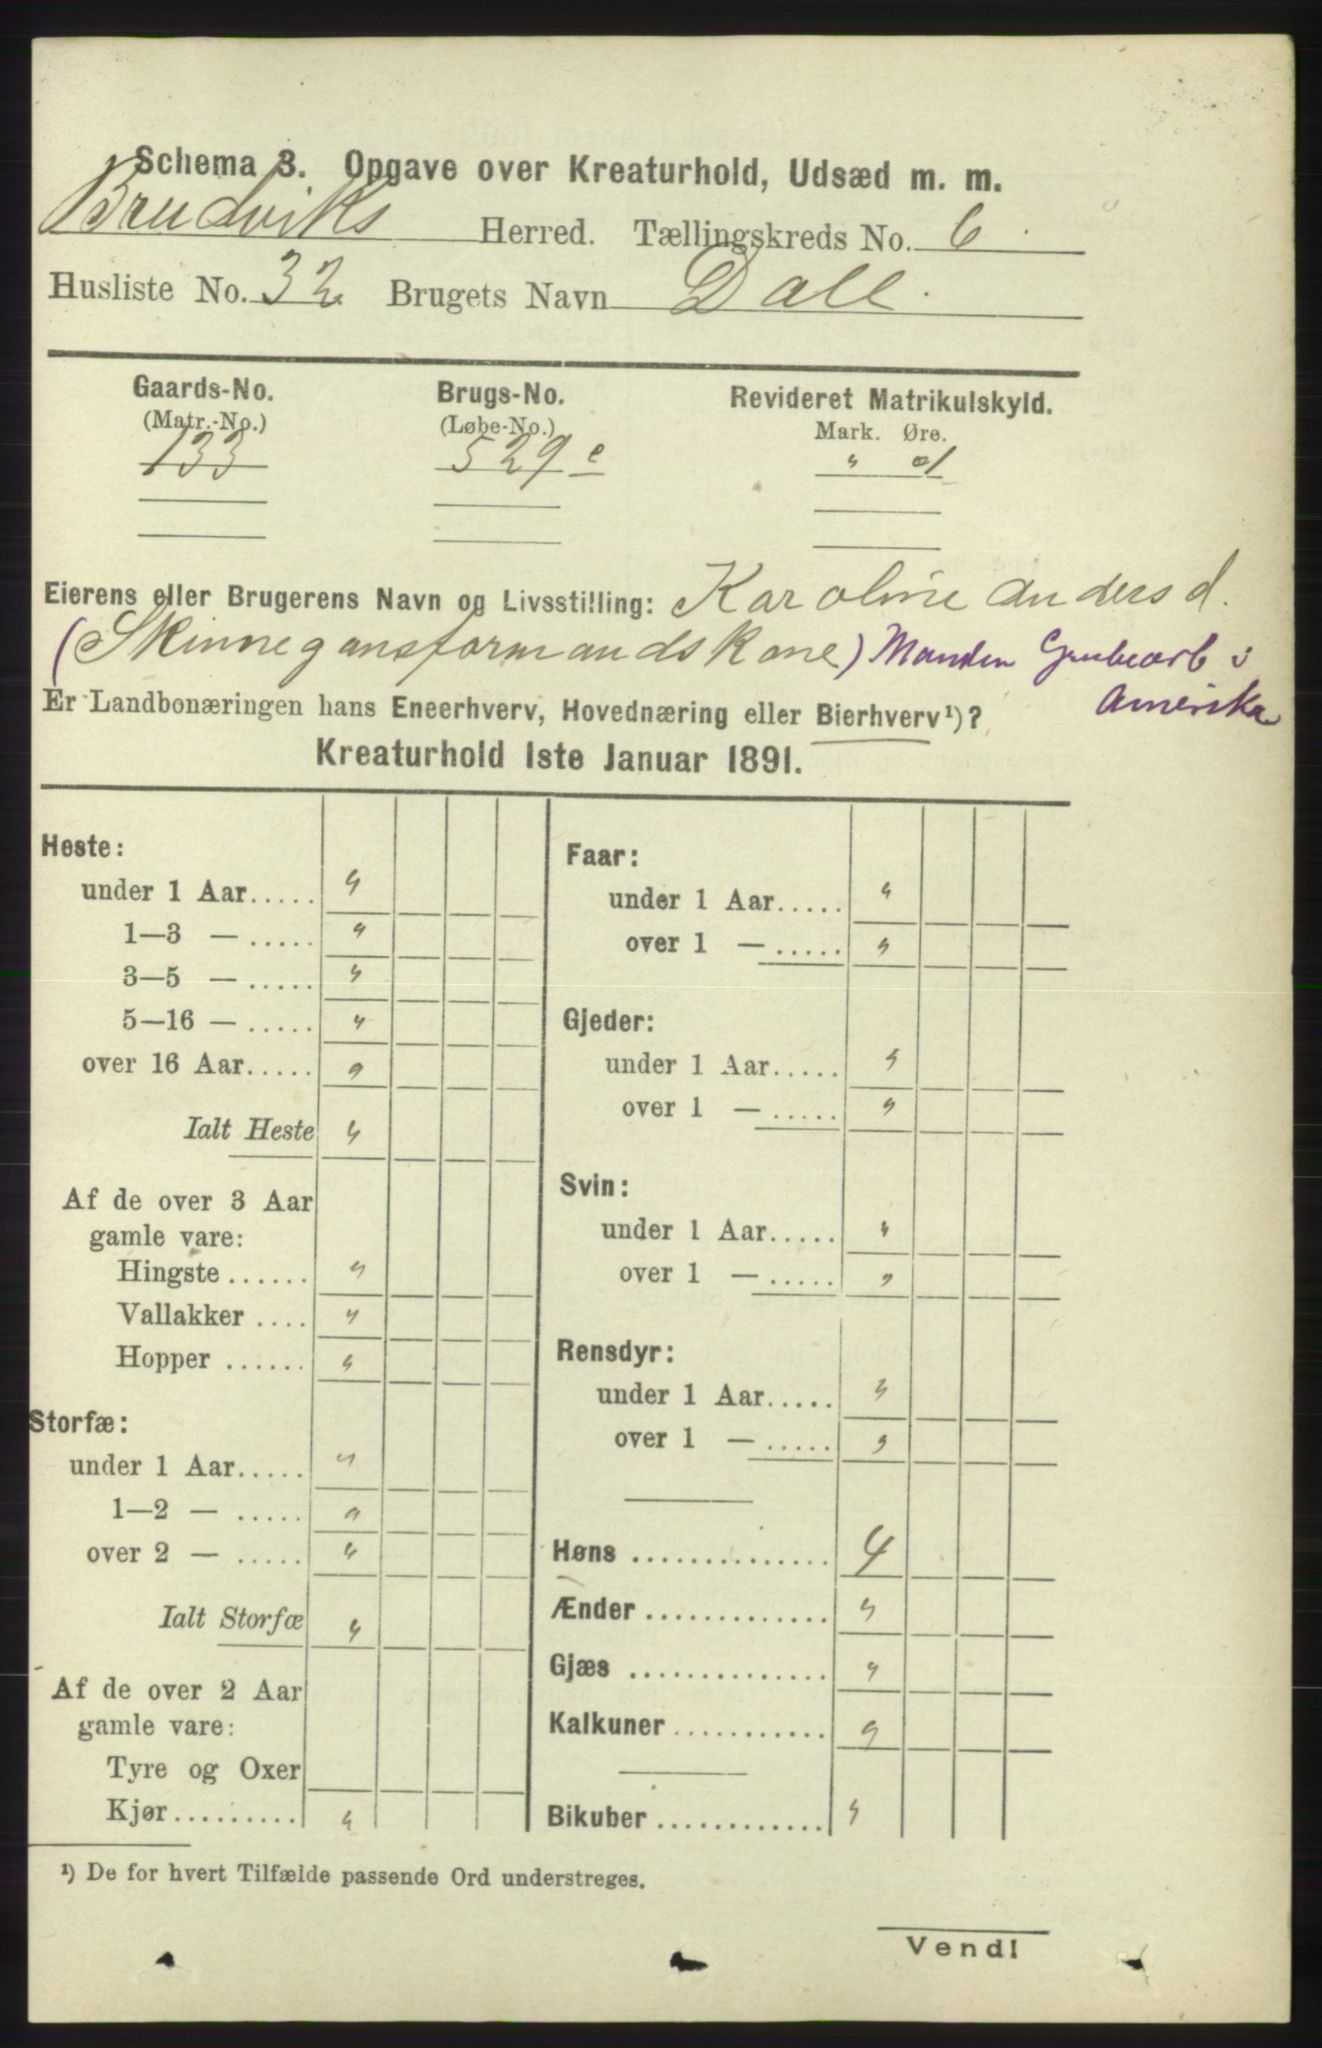 Schema 3. Opgave over Kreaturhold, Udsæd m. m.
Brudviks Herred. Tællingskreds No. 6.
Husliste No. 32 Brugets Navn Dale.
Gaards-No. Brugs-No. Revideret Matrikulskyld.
(Matr.-No.) (Løbe-No.) Mark. Øre.
133 529 e " 01
Eierens eller Brugerens Navn og Livsstilling: Karoline Andersd.
(Skinnegansformandskone) Manden Grubearb i
Amerika
Er Landbonæringen hans Eneerhverv, Hovednæring eller Bierhverv¹)?
Kreaturhold 1ste Januar 1891.
Heste:
under 1 Aar..... "
1—3 — ..... "
3—5 — ..... "
5—16 — ..... "
over 16 Aar..... "
Ialt Heste "
Af de over 3 Aar
gamle vare:
Hingste ...... "
Vallakker .... "
Hopper ...... "
Storfæ:
under 1 Aar..... "
1—2 — ..... "
over 2 — ..... "
Ialt Storfæ "
Af de over 2 Aar
gamle vare:
Tyre og Oxer
Kjør......... "
Faar:
under 1 Aar..... "
over 1 — ..... "
Gjeder:
under 1 Aar..... "
over 1 — ..... "
Svin:
under 1 Aar..... "
over 1 — ..... "
Rensdyr:
under 1 Aar..... "
over 1 — ..... "
Høns .............. 4
Ænder ............. "
Gjæs .............. "
Kalkuner ........... "
Bikuber ............ "
¹) De for hvert Tilfælde passende Ord understreges.
Vend!